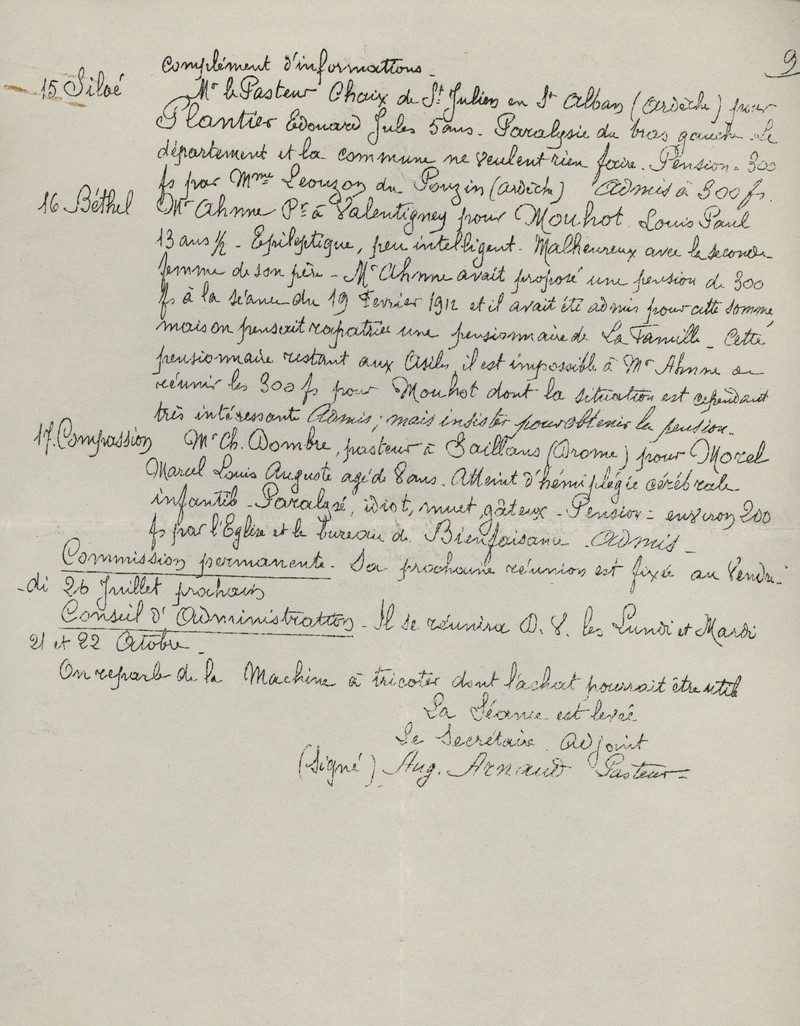 9
complément d'informations -
15 Siloé Mr le Pasteur Chaix de St Julien en St Alban (Ardèche) pour
Plantier Edouard Jules 5 ans - Paralysie du bras gauche - Le
département et la commune ne veulent rien faire. Pension = 300
fs par Mme Leouzon du Pouzin (Ardèche) Admis à 300 fs.
16 Béthel Mr Ahnne Pr à Valentigney pour Mouhot Louis Paul
13 ans 1/2 - Epileptique, peu intelligent - Malheureux avec la seconde
femme de son père - Mr Ahnne avait proposé une pension de 300
fs à la séance du 19 Février 1912 et il avait été admis pour cette somme,
mais on pensait rapatrier une pensionnaire de La Famille - Cette
pensionnaire restant aux Asiles, il est impossible à Mr Ahnne de
réunir les 300 fs pour Mouhot dont la situation est cependant
très intéressante Admis ; mais insister pour obtenir la pension.
17. Compassion Mr Ch. Dombre, pasteur à Saillans (Drome) pour Morel
Marcel Louis Auguste agé de 8 ans. Atteint d'hémiplégie cérébrale
infantile - Paralysé, idiot, muet, gâteux - Pension = environ 200
fs par l'Eglise et le bureau de Bienfaisance - Admis -
Commission permanente - Sa prochaine réunion est fixée au Vendre-
-di 26 Juillet prochain
Conseil d'Administration - Il se réunira D. V. les Lundi et Mardi
21 et 22 Octobre -
On reparle de la Machine à tricoter dont l'achat pourrait être utile
La Séance est levée
Le Secrétaire Adjoint
(Signé) Aug. Arnaud Pasteur =